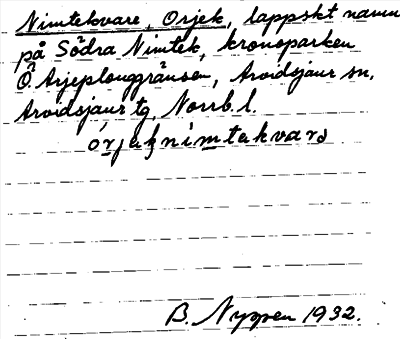 Nimtekvare, Orjek, lappskt namn
på Södra Nimtek, kronoparken
Ö. Arjeplouggränsen, Arvidsjaur sn,
Arvidsjaur tg, Norrb. l.
órjeknimtekvare
B. Nyppen 1932.